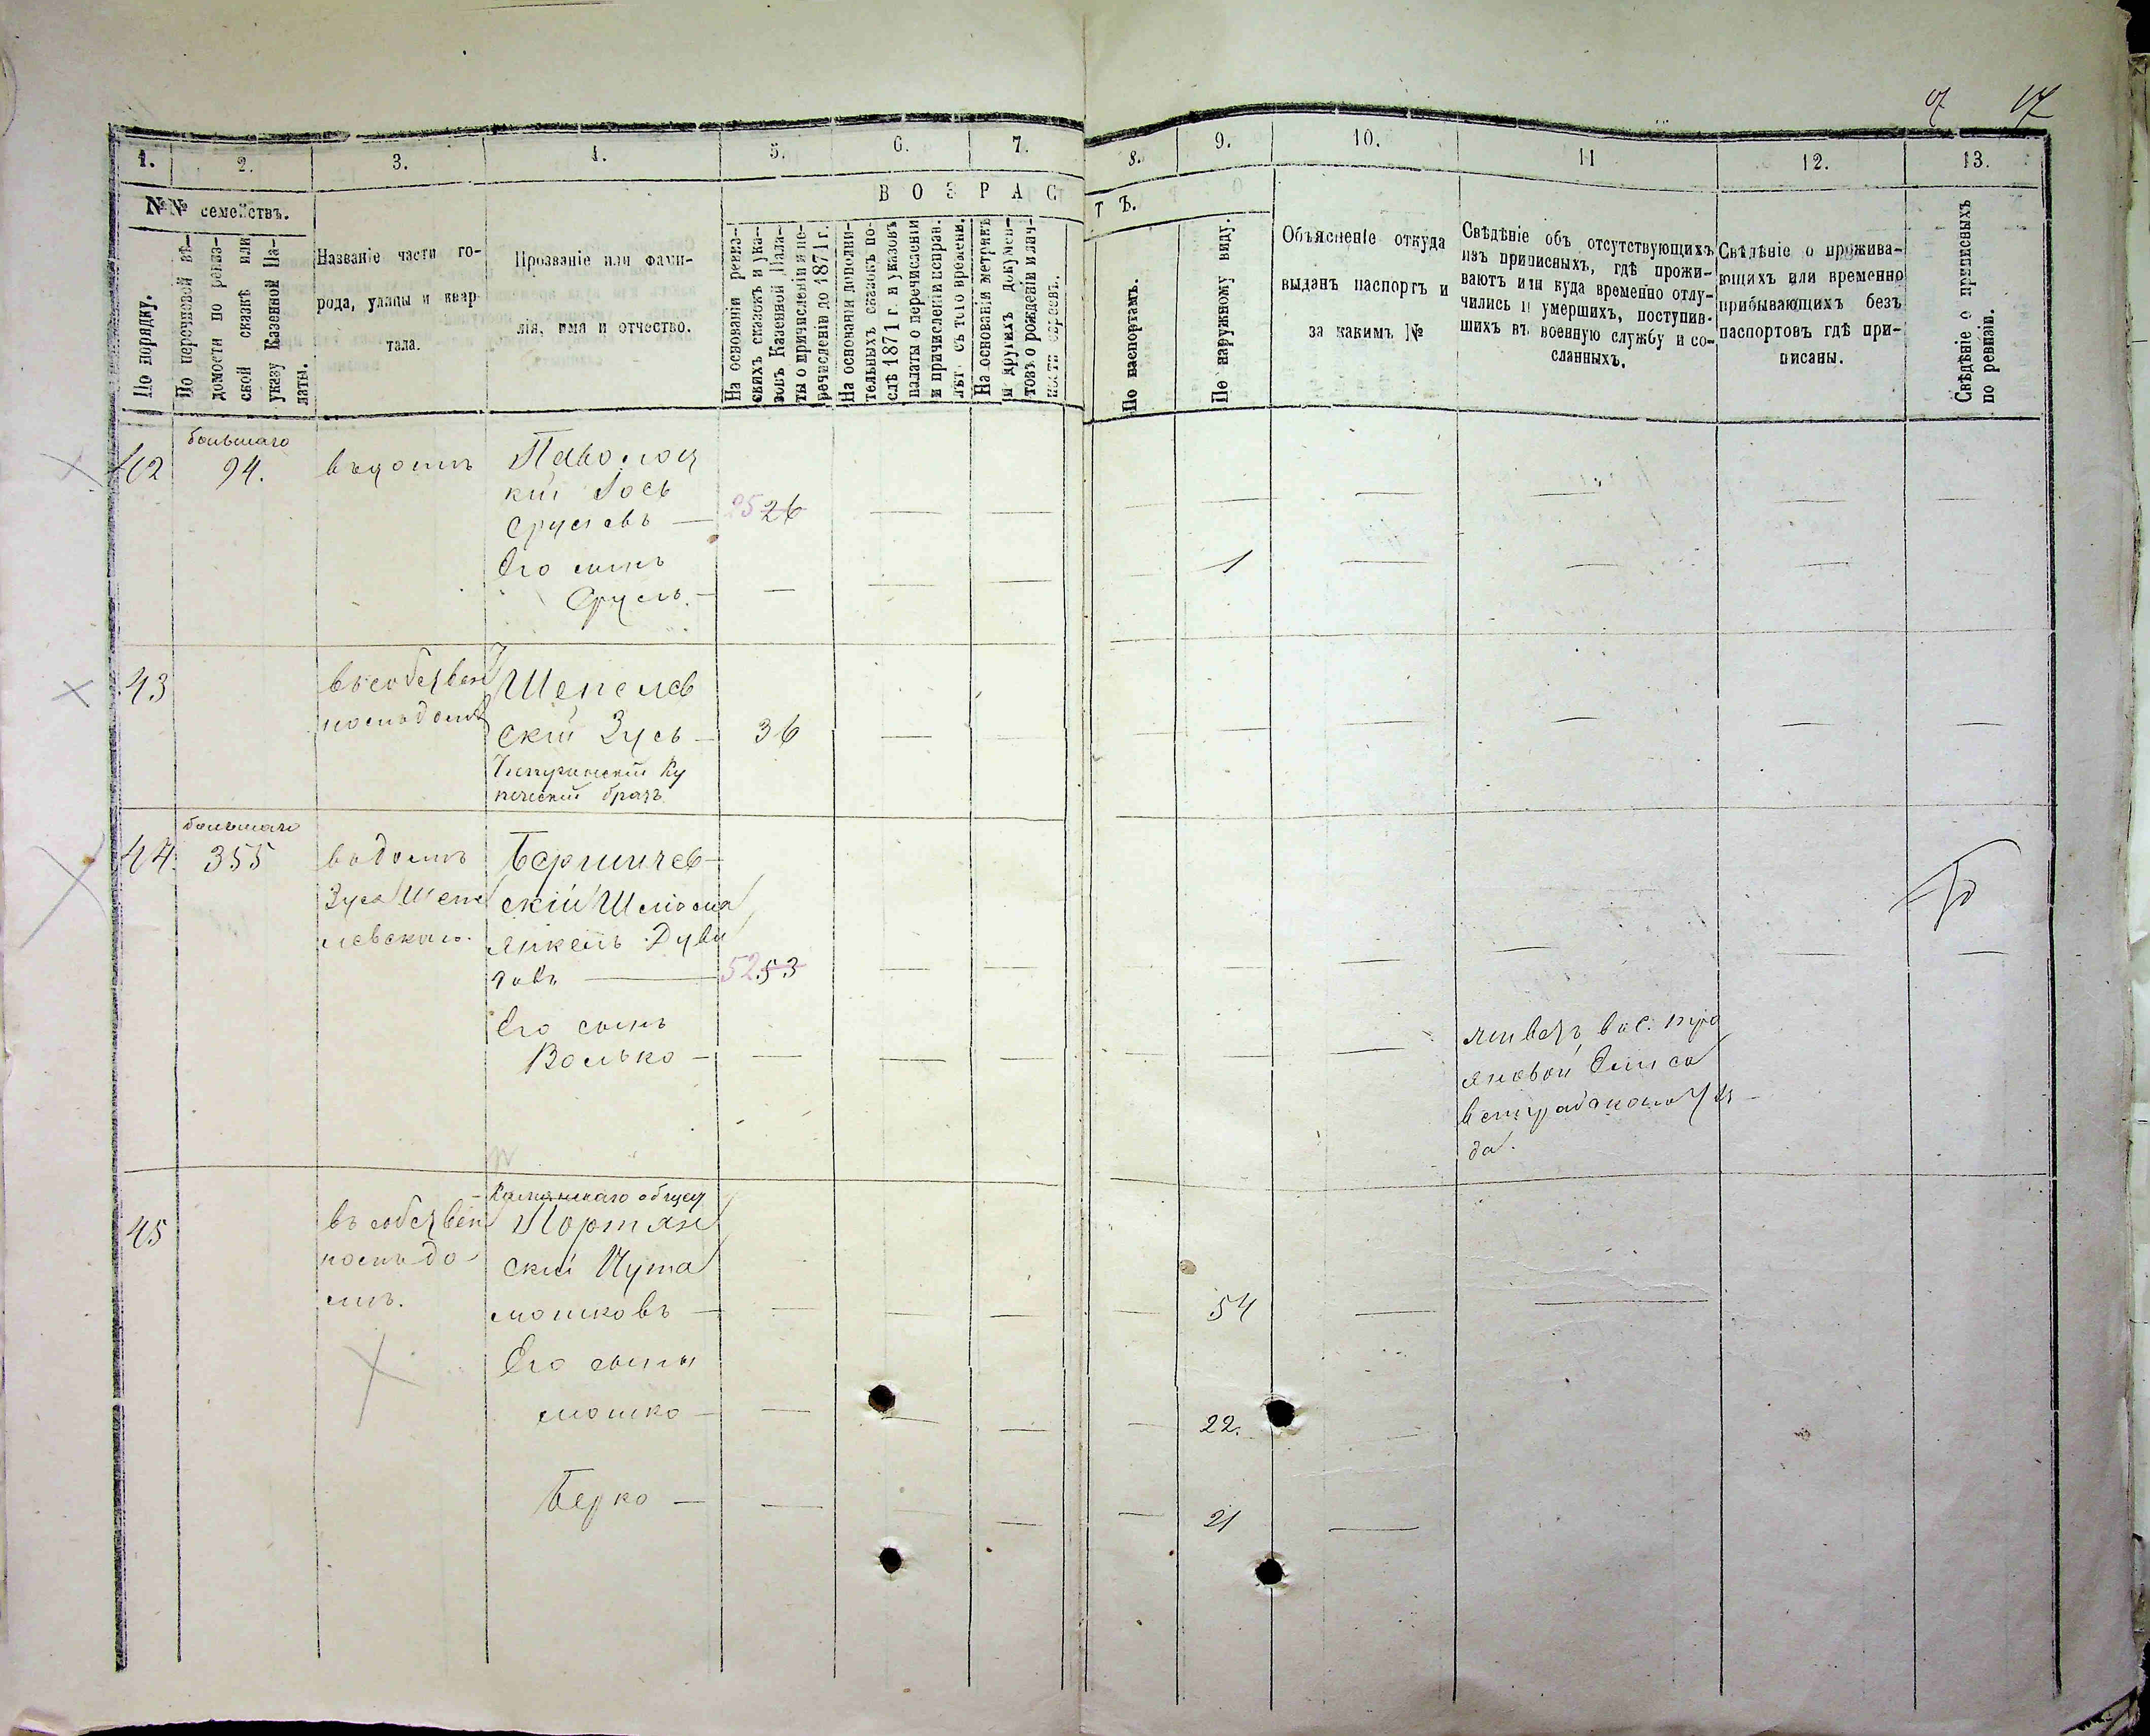 17
1. 2. 3. 4. 5. 6. 7. 8. 9. 10. 11 12. 13.
№№ семействъ.
По порядку.
По перечневой вѣ-
домости по ревиз-
ской сказкѣ или
указу Казенной Па-
латы.
Названіе части го-
рода, улицы и квар-
тала.
Прозваніе или фами-
лія, имя и отчество.
ВОЗРАСТЪ.
На основаніи ревиз-
скихъ сказокъ и ука-
зовъ Казенной Пала-
ты о причисленіи и пе-
речисленіи до 1871 г.
На основаніи дополни-
тельныхъ сказокъ по-
слѣ 1871 г. и указовъ
палаты о перечисленіи
и причисленіи исправ.
лѣт съ того времени.
На основаніи метрикъ
и другихъ докумен-
товъ о рожденіи и лич-
ности евреевъ.
По паспортамъ.
По наружному виду.
Объясненіе откуда
выданъ паспортъ и
за какимъ №
Свѣдѣніе объ отсутствующихъ
изъ приписныхъ, гдѣ прожи-
ваютъ или куда временно отлу-
чились и умершихъ, поступив-
шихъ въ военную службу и со-
сланныхъ.
Свѣдѣніе о прожива-
ющихъ или временно
прибывающихъ безъ
паспортовъ гдѣ при-
писаны.
Свѣдѣніе о приписныхъ
по ревизіи.
42
большаго
94.
Паволоц
кій Іось
Сруслевъ — 25 26
Его сынъ
Сруль — 1
43
въ собствен
номъ домѣ
Шепелев
скій Зусь — 36
купеческій братъ
44.
большаго
355
въ домѣ
Зуся Шепе
левскаго.
Бершичев-
скій Шліома
Янкель Дуви
довъ — 52 53
Его сынъ
Волько —
живетъ въ с. Тро
яновой Елиса
ветградскаго уѣз
да.
45
въ собствен
номъ до
мѣ.
общест
Портян
скій Нута
Мошковъ — 54
Его сыны
Мошко — 22.
Берко — 21